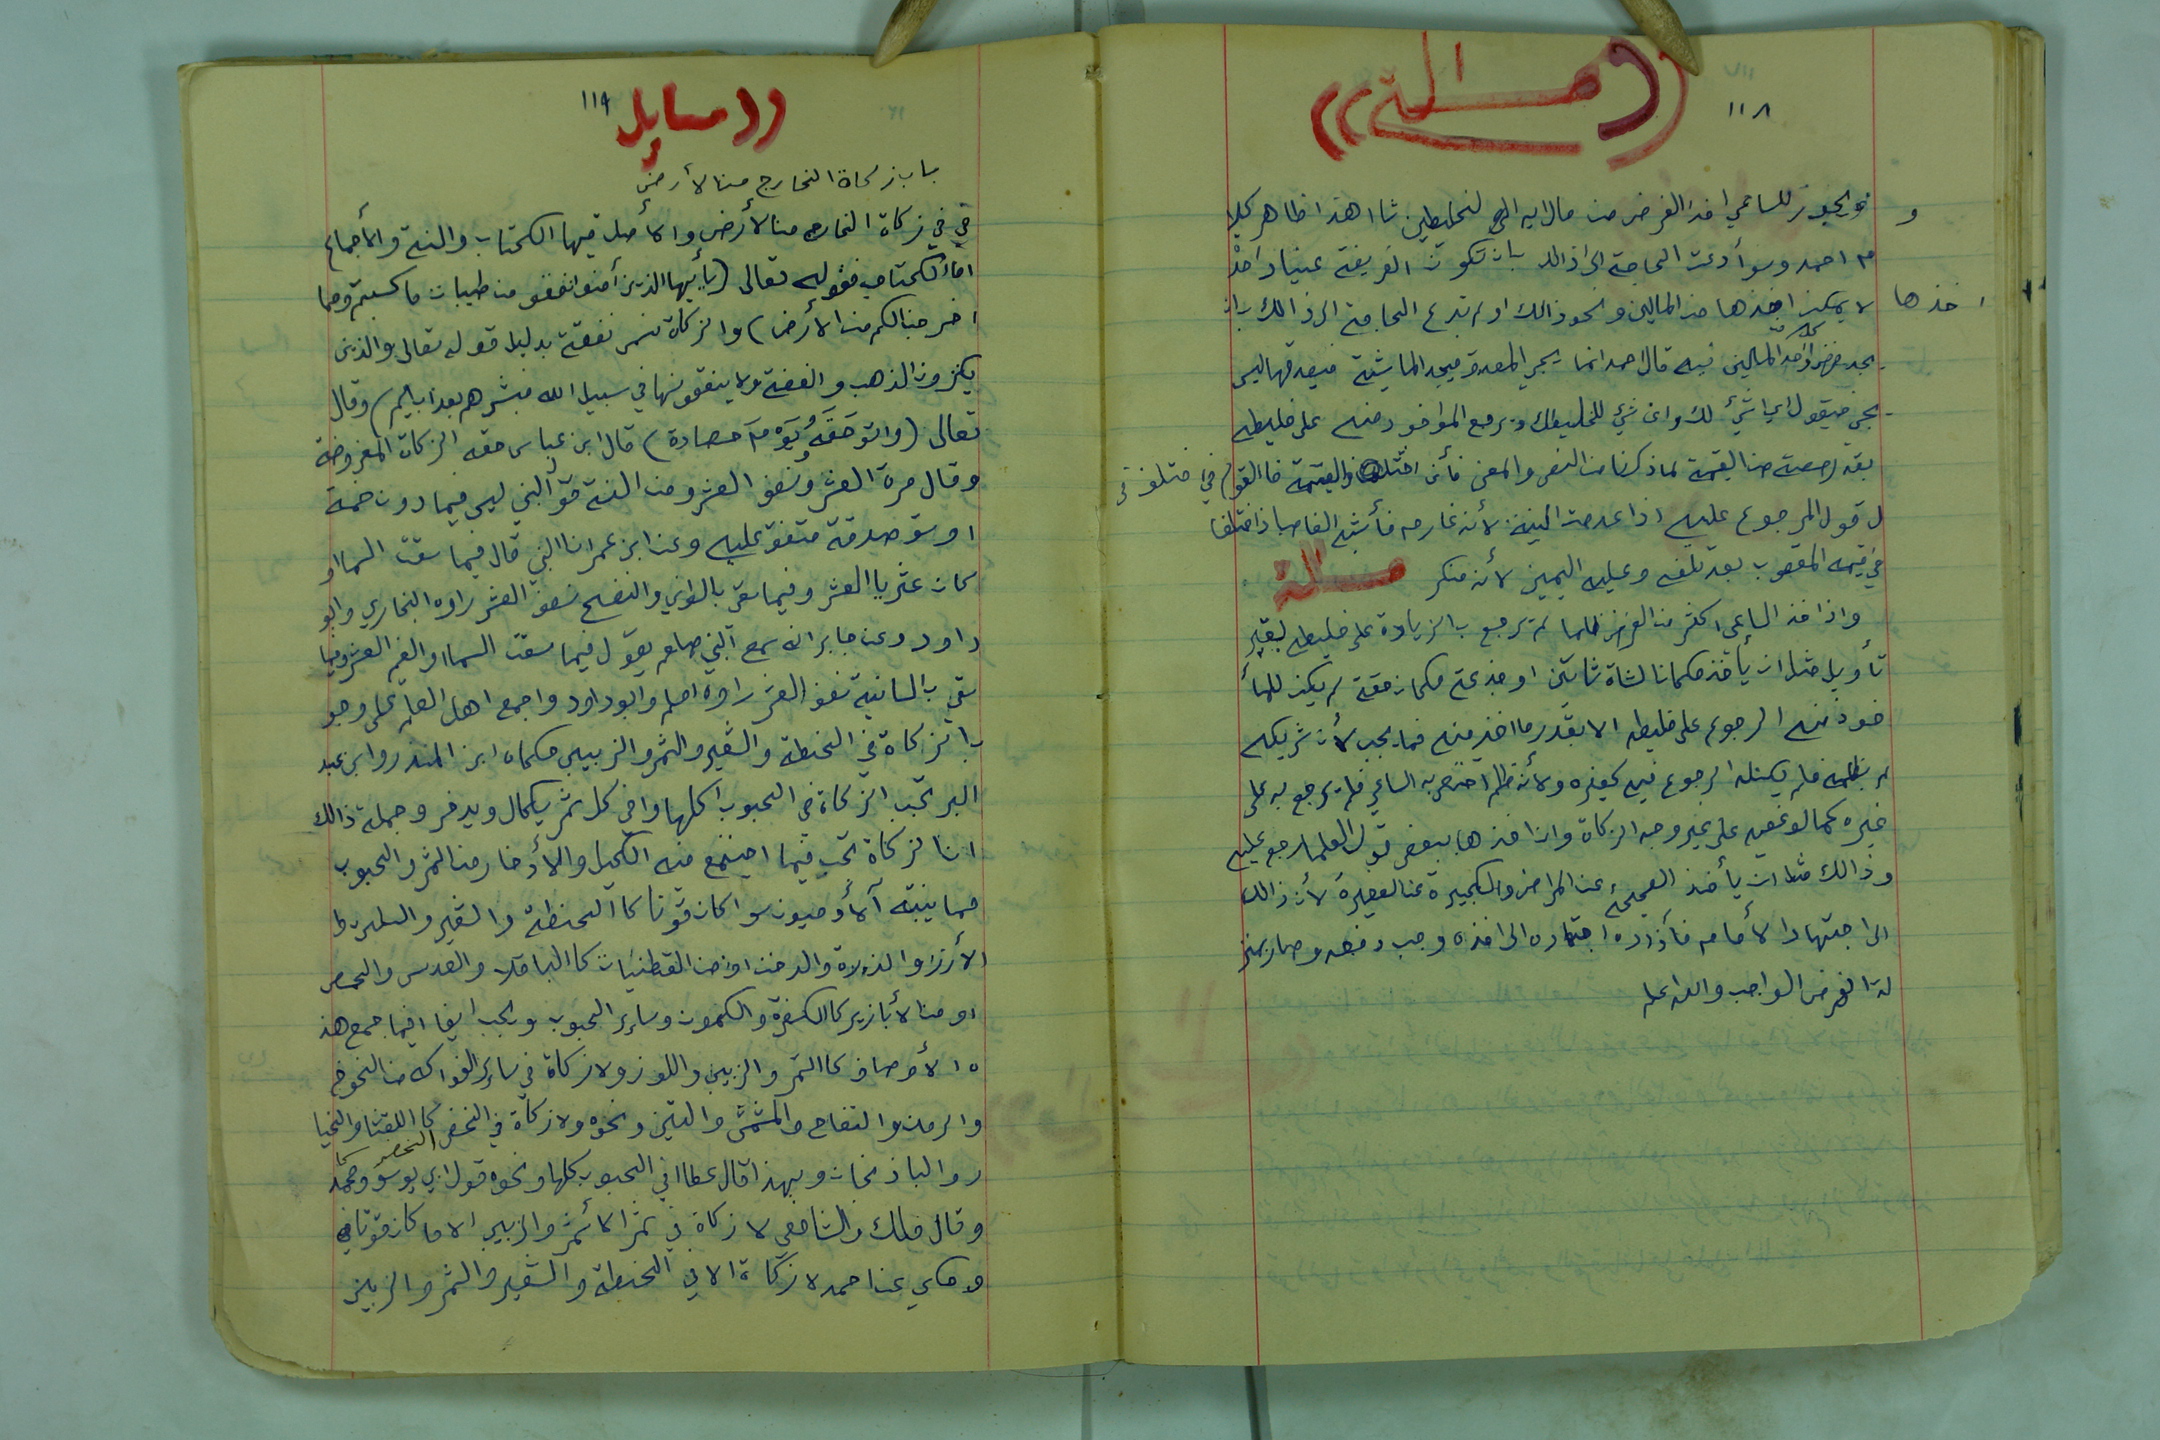 ١١٨
((مسألة))
و يجوز للساعي اخذ الفرض من مال اي الخليطين شاا هذا ظاهر كلا
م احمد وسوأ دعت الحاجة الى ذالك بان تكون الفريضة عينا واحدة
لا يمكن اخذها من المالين ونحو ذالك او لم تدع الحاجة الى ذالك بان
اخذها
يجد فرض كل المالين فيه قال احمد انما يجي المصدق فيجد الماشية فيصدقها ليس
يجي فيقول اي شيئ لك وان شيئ لخليطك ويرجع المواخوذ منه على خليطه
بقدر حصته من القيمة لما ذكرنا من النص والمعنى فأن اختلفا في القيمة فا القو
ل قول المرجوع عليه اذا عدمت البينة لأنه غارم فأشبه الغاصب اذا اختلفا
في قيمة المغصوب بعد تلفه وعليه اليمين لأنه منكر مسألة
واذا اخذ الساعي اكثر من الفرض ظلما لم يرجع با الزيادة على خليطه بغير
تأويل مثل ان يأخذ مكان الشاة شاتين او جذعة مكان حقة لم يكن للمأ
خوذ منه الرجوع على خليطه الا بقدر ما اخذ منه فما يجب لأن شريكه
لم يظلمه فلم يكن له الرجوع فيه كغيره ولأنه ظلم اختص به الساعي فلم يرجع به على
غيره كما لو غصبه على غير وجه الزكاة واذا اخذها ببعض قول العلما رجع عليه
وذالك مثل ان يأخذ الصحيحة عن المراض والكبيرة عن الصغيرة لأن ذالك
الى اجتهاد الأمام فأذا اداه اجتهاده الى اخذه وجب دفعه وصار بمنز
لة الفرض الواجب والله اعلم
١١٩
((مسايل
باب زكاة الخارج من الأرض
في زكاة الخارج من الأرض والأصل فيها الكتاب والسنة والأجماع
اما الكتاب فقوله تعالى (يا أيها الذين أمنوا انفقو من طيبات ما كسبتم ومما
اخرجنا لكم من الأرض) والزكاة تسمى نفقة بدليل قوله تعالى والذين
يكنزون الذهب والفضة ولا ينفقونها في سبيل الله فبشرهم بعذاب اليم) وقال
تعالى (واتو حَقَهُ يَوْمَ حصادة) قال ابن عباس حقه الزكاة المفروضة
وقال مرة العشر ونصف العشر ومن السنة قول النبي ليس فيما دون خمسة
اوسق صدقة متفق عليه وعن ابن عمر ان النبي قال فيما سقت السما او
كان عثريا العشر وفيما سقي بالسواني والنضح نصف العشر راوه البخاري وابو
داود وعن جابر انه سمع النبي صلعم يقول فيما سقت السما والغيم العشر وفيما
سقي بالسانية نصف العشر راوه مسلم وابو داود واجمع اهل العلم على وجو
ب الزكاة في الحنطة والشعير والتمر والزبيب حكاه ابن المنذر وابن عبد
البر تجب الزكاة في الحبوب اكلها وفي كل ثمر يكال ويدخر وجملة ذالك
ان الزكاة تجب فيما اجتمع فيه الكيل والأدخار من الثمر والحبوب
مما ينبته الأدميون سوا كان قوتا كا الحنطة والشعير والسلت وا
الأرز والذره والدخن او من القطنيات كا الباقلا والعدس والحمص
او من الأبازير كا الكسفرة والكمون وساير الحبوب ويجب ايضا فيما جمع هذ
ه الأوصاف كا التمر والزبيب واللوز ولا زكاة في ساير الفواكه من الخوخ
والرمان والتفاح والمشمش والتين ونحوه ولا زكاة في الخضر كا القثا والخيا
ر والباذنجان وبهذا قال عطا في الحبوب كلها ونحوه قول ابي يوسف ومحمد
وقال مالك والشافعي لا زكاة في ثمر الا ثمر والزبيب الا ما كان قوتا في
وحكي عن احمد لا زكاة الا في الحنطة والشعير والتمر والزبيب